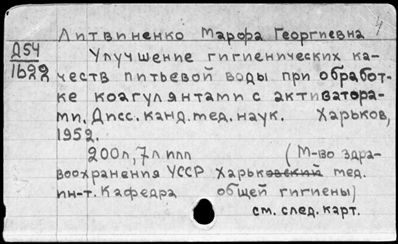 Литвиненко Марфа Георгиевна 4
Д54
1622
Улучшение гигиенических ка-
честв питьевой воды при обработ-
ке коагулянтами с активатора-
ми. Дисс. канд. мед. наук. Харьков,
1952.
200л, 7л илл (М-во здра-
воохранения УССР Харьковский мед.
ин-т. Кафедра общей гигиены)
см. след. карт.